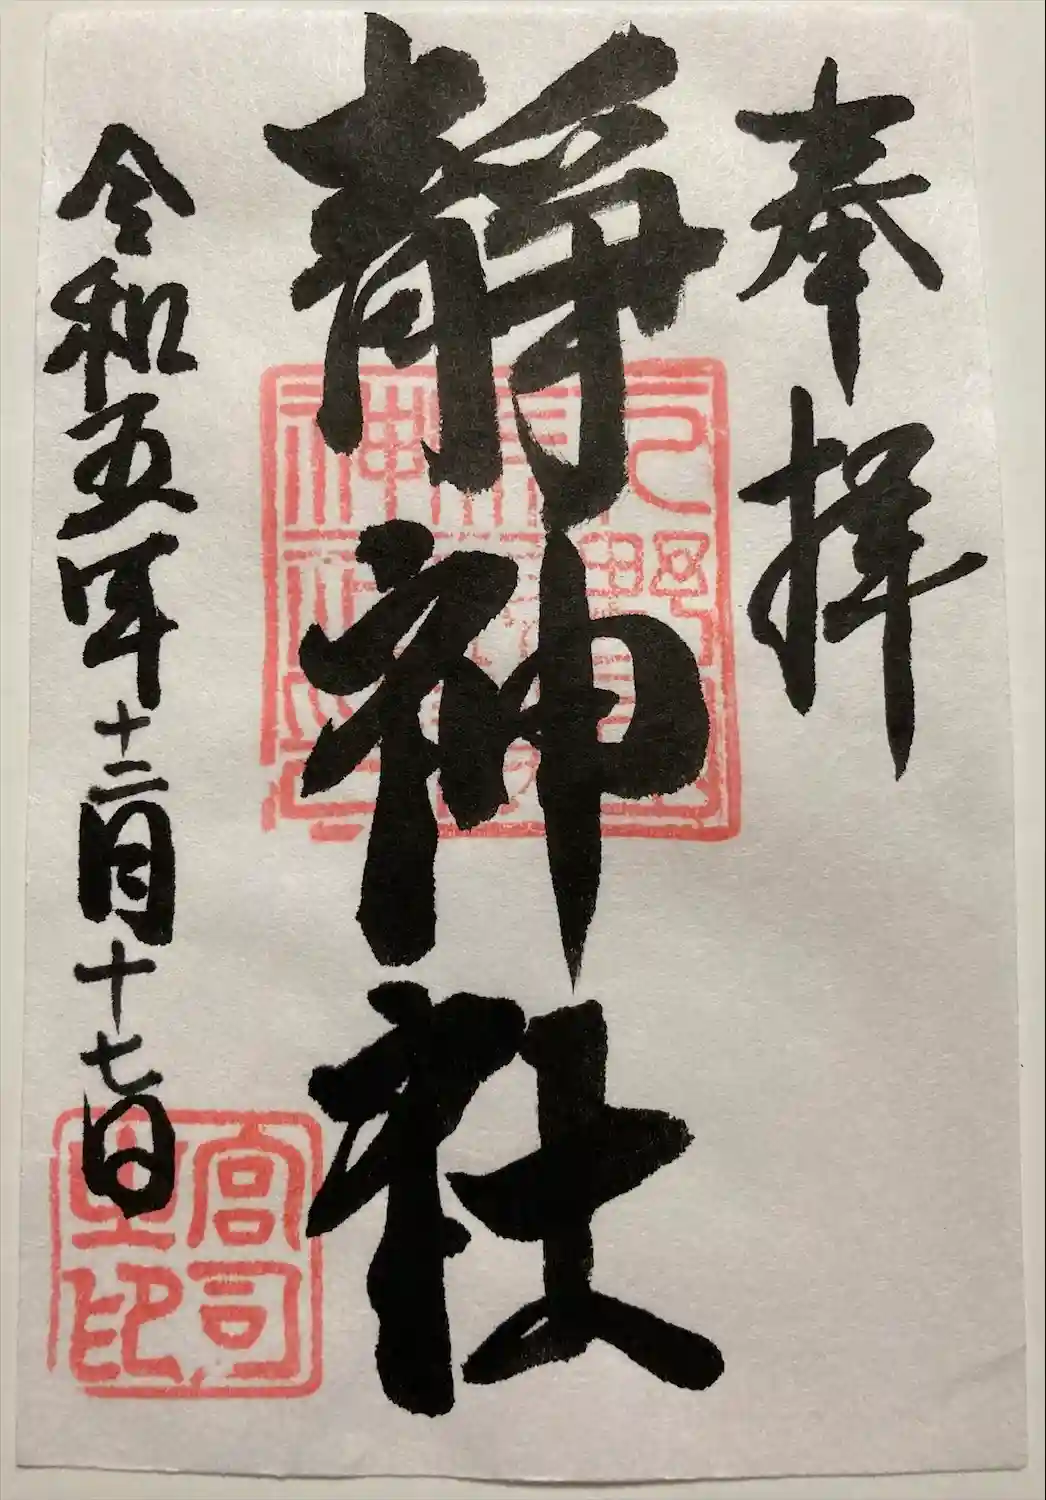 奉拝
靜神社
令和五年十二月十七日
宮司
之印